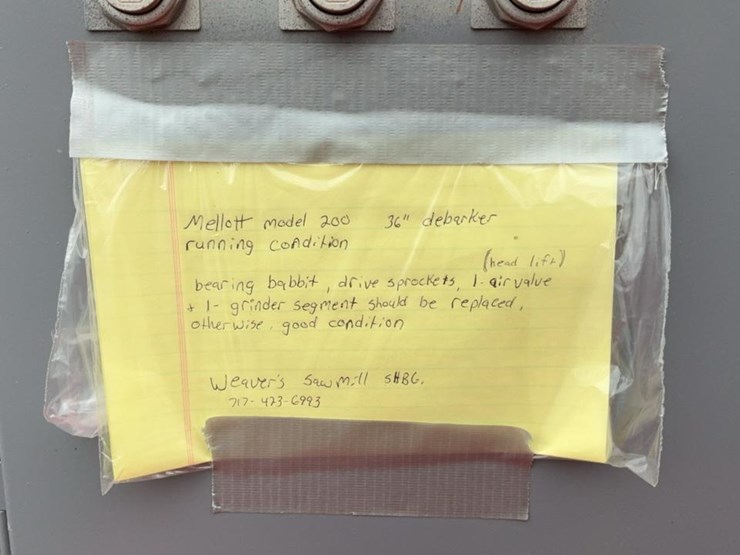 Mellott model 200 36" debarker
running condition
(head lift)
bearing babbit, drive sprockets, 1-air value
+ 1- grinder segment should be replaced,
otherwise good condition
Weaver's Sawmill SHBG.
717-473-6993